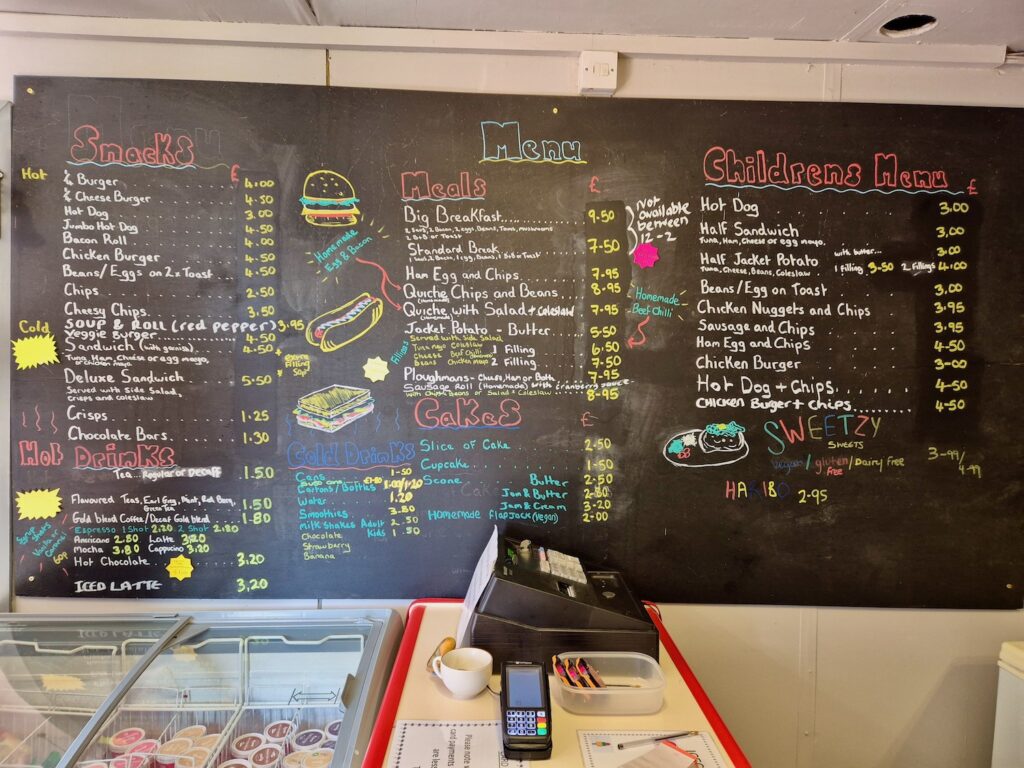 Menu
Snacks
£
Hot
¼ Burger 4.00
¼ Cheese Burger 4.50
Hot Dog 3.00
Jumbo Hot Dog 4.50
Bacon Roll 4.00
Chicken Burger 4.50
Beans/Eggs on 2x Toast 4.50
Chips 2.50
Cheesy Chips 3.50
SOUP & ROLL (red pepper) 3.95
Veggie Burger 4.50
Cold
Sandwich (with garnish) 4.50
Tuna, Ham, Cheese or egg mayo,
or chicken mayo.
extra
filling
50p
Deluxe Sandwich 5.50
Served with Side Salad,
crisps and coleslaw
Crisps 1.25
Chocolate Bars 1.30
Hot Drinks
Tea... Regular or Decaff 1.50
Flavoured Teas, Earl Grey, Mint, Red Berry, 1.50
Green Tea
Gold blend Coffee/Decaf Gold blend 1.80
Espresso 1 Shot 2.20 2 Shot 2.80
Americano 2.50 Latte 3.20
Mocha 3.80 Cappuccino 3.20
Hot Chocolate 3.20
ICED LATTE 3.20
Syrup Shots
Vanilla or
Caramel
60p
Homemade
Egg & Bacon
Meals
£
Big Breakfast 9.50
Standard Break 7.50
1 Saus, 1 Bacon, 1 egg, Beans, 1 B&B or Toast
Not
available
between
12-2
Ham Egg and Chips 7.95
Quiche Chips and Beans 8.95
(Homemade)
Quiche with Salad + Coleslaw 7.95
(Homemade)
Jacket Potato - Butter 5.50
Served with Side Salad
Fillings
Tuna mayo Coleslaw
Cheese Beef Chilli 1 Filling 6.50
Beans Chicken mayo 2 Filling 7.50
Homemade
Beef Chilli
Ploughmans - Cheese, Ham or Both 7.95
Sausage Roll (Homemade) with cranberry sauce
with Chips Beans or Salad + Coleslaw 8.95
Cold Drinks
Cans 1.50
Cartons/Bottles
Water 1.20
Smoothies 3.80
Milk Shakes Adult 2.50
Kids 1.50
Chocolate
Strawberry
Banana
Cakes
£
Slice of Cake 2.50
Cupcake 1.50
Scone Butter 2.50
Jam & Butter 2.80
Jam & Cream 3.20
Homemade Flapjack (Vegan) 2.00
Childrens Menu
£
Hot Dog 3.00
Half Sandwich 3.00
Tuna, Ham, Cheese or egg mayo.
with butter... 3.00
Half Jacket Potato 1 filling 3.50 2 Fillings 4.00
Tuna, Cheese, Beans, Coleslaw
Beans/Egg on Toast 3.00
Chicken Nuggets and Chips 3.95
Sausage and Chips 3.95
Ham Egg and Chips 4.50
Chicken Burger 3.00
Hot Dog + Chips 4.50
CHICKEN Burger + chips 4.50
SWEETZY
SWEETS
vegan/gluten/Dairy free 3-99/
free 4.99
HARIBO 2.95
Please note
card payments
are less